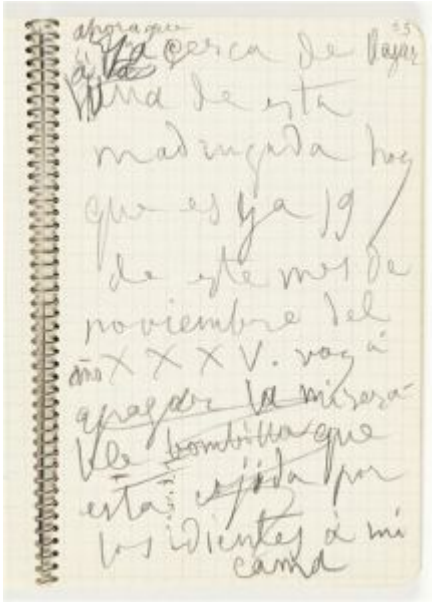 ahora que
a la cerca de
una de esta
madrugada hoy
que es ya 19
de este mes de
noviembre del
año XXXV. voy á
apagar la misera-
ble bombilla que
esta cojida por
los dientes á mi
cama